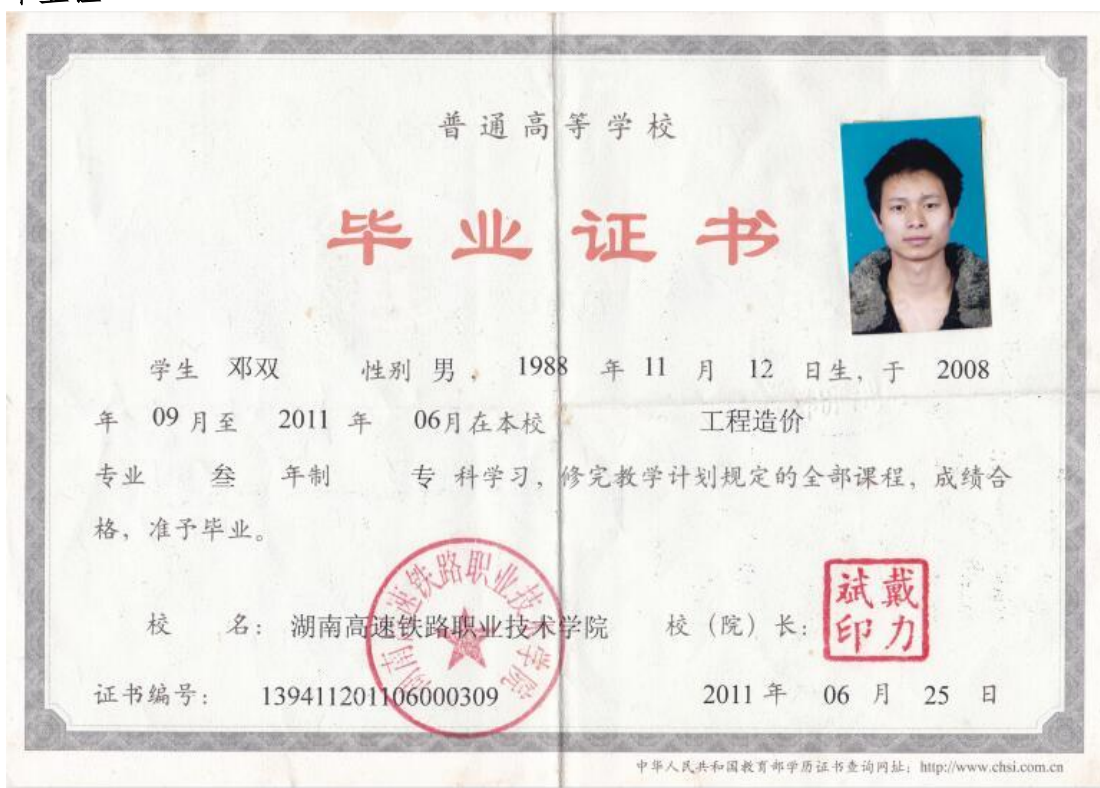 普通高等学校
毕业证书
学生 邓双 性别 男 ， 1988 年 11 月 12 日生，于 2008
年 09 月至 2011 年 06月在本校 工程造价
专业 叁 年制 专 科学习，修完教学计划规定的全部课程，成绩合
格，准予毕业。
湖南高速铁路职业技术学院
戴力斌印
校 名：湖南高速铁路职业技术学院 校（院）长：
证书编号： 139411201106000309 2011 年 06 月 25 日
中华人民共和国教育部学历证书查询网址：http://www.chsi.com.cn